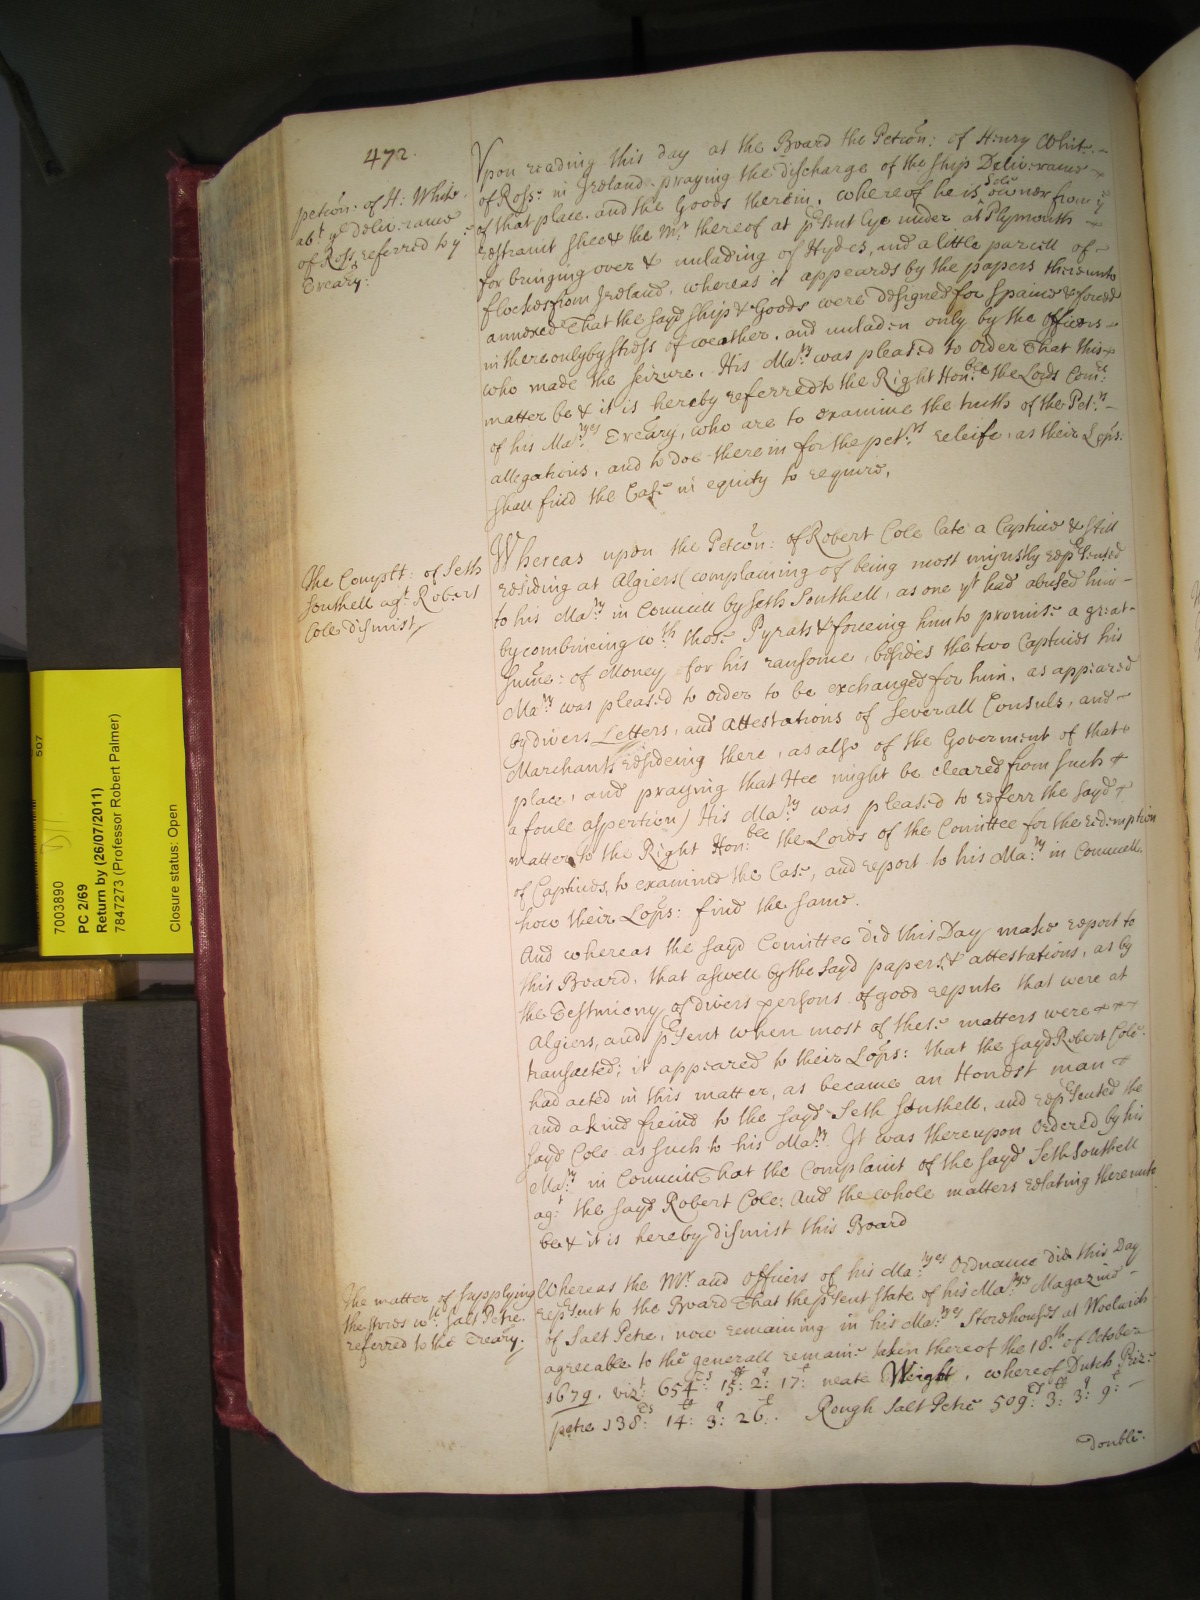 472.
petic̃on: of H: White
abt ye Deliverance
of Ross referred to ye
Treãry:
Upon reading this day at the Board the Petic̃on: of Henry White
of Rosse in Ireland praying the discharge of the ship Deliverance
of that place, and the Goods therein, whereof he is Sole owner from ye
restraint shee & the Mr thereof at p̃sent lye under at Plymouth
for bringing over & unlading of Hydes, and a little parcell of
flockes from Ireland, whereas it appeares by the papers thereunto
annexed That the sayd ship & Goods were designed for Spaine & forced
in there only by stress of weather, and unladen only by the Officers
who made the seizure. His Maty: was pleased to order That this
matter be & it is hereby referred to the Right Honble: the Lords Comrs:
of his Matyes Treãry, who are to examine the truth of the Petrs:
allegations, and to doe therein for the petrs: releife, as their Lopps:
shall find the Case in equity to require,
The Complt: of Seth
Southell agt Robert
Cole dismist
Whereas upon the Petic̃on: of Robert Cole late a Captive & still
residing at Algiers (complaining of being most unjustly rep̃sented
to his Maty: in Councill by Seth Southell, as one yt had abused him
by combineing wth those Pyrats & forceing him to promise a great
sum̃e: of Money for his ransome, besides the two Captives his
Maty: was pleased to order to be exchanged for him, as appeared
by divers Letters, and Attestations of severall Consuls, and
Marchants resideing there, as also of the Goverment of that
place, and praying that Hee might be cleared from such
a foule aspertion) His Maty: was pleased to referr the sayd
matter to the Right Honble: the Lords of the Comittee for the redemption
of Captives, to examine the Case, and report to his Maty: in Councell
how their Lopps: find the same.
And whereas the sayd Comittee did this Day make report to
this Board, that aswell by the sayd papers, & attestations, as by
the Testimony of divers persons of good repute that were at
Algiers, and p̃sent when most of these matters were
transacted; it appeared to their Lopps: that the sayd Robert Cole
had acted in this matter, as became an Honest man
and a kind freind to the sayd Seth Southell, and rep̃sented the
sayd Cole as such to his Maty: It was thereupon Ordered by his
Maty: in Councill That the Complaint of the sayd Seth Southell
agt: the sayd Robert Cole: And the whole matters relating thereunto
be & it is hereby dismist this Board
The matter of supplying
the stores wth: Salt Petre
referred to the Treãry:
Whereas the Mr and Officers of his Matyes Ordnance did this Day
rep̃sent to the Board That the p̃sent state of his Matyes Magazine
of Salt Petre, now remaining in his Matyes Storehouses at Woolwich
agreeable to the generall remaine taken thereof the 18th of October
1679, vizt: 654: 15: 2: 17: neate Weight, whereof Dutch Prize
petre 138: 14: 3: 26: Rough Salt Petre 509: 3: 3: 9:
Double
507
7003890
PC 2/69
Return by (26/07/2011)
7847273 (Professor Robert Palmer)
Closure status: Open